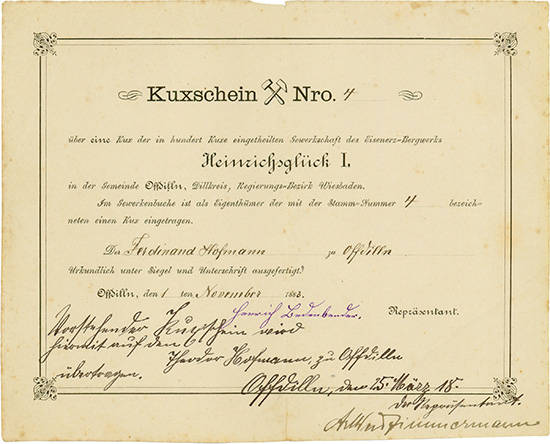 Kuxschein Nro. 4
über eine Kux der in hundert Kuxe eingetheilten Gewerkschaft des Eisenerz-Bergwerks
Heinrichsglück I.
in der Gemeinde Offdilln, Dillkreis, Regierungs-Bezirk Wiesbaden.
Im Gewerkenbuche ist als Eigenthümer der mit der Stamm-Nummer 4 bezeich-
neten einen Kux eingetragen.
Der Ferdinand Hofmann zu Offdilln
Urkundlich unter Siegel und Unterschrift ausgefertigt.
Offdilln, den 1 ten November 1883.
Heinrich Bedenbender. Repräsentant.
Vorstehender Kuxschein wird
hiermit auf den
Theodor Hofmann, zu Offdilln
übertragen.
Offdilln, den 25. März 18.
Der Repräsentant.
Zimmermann